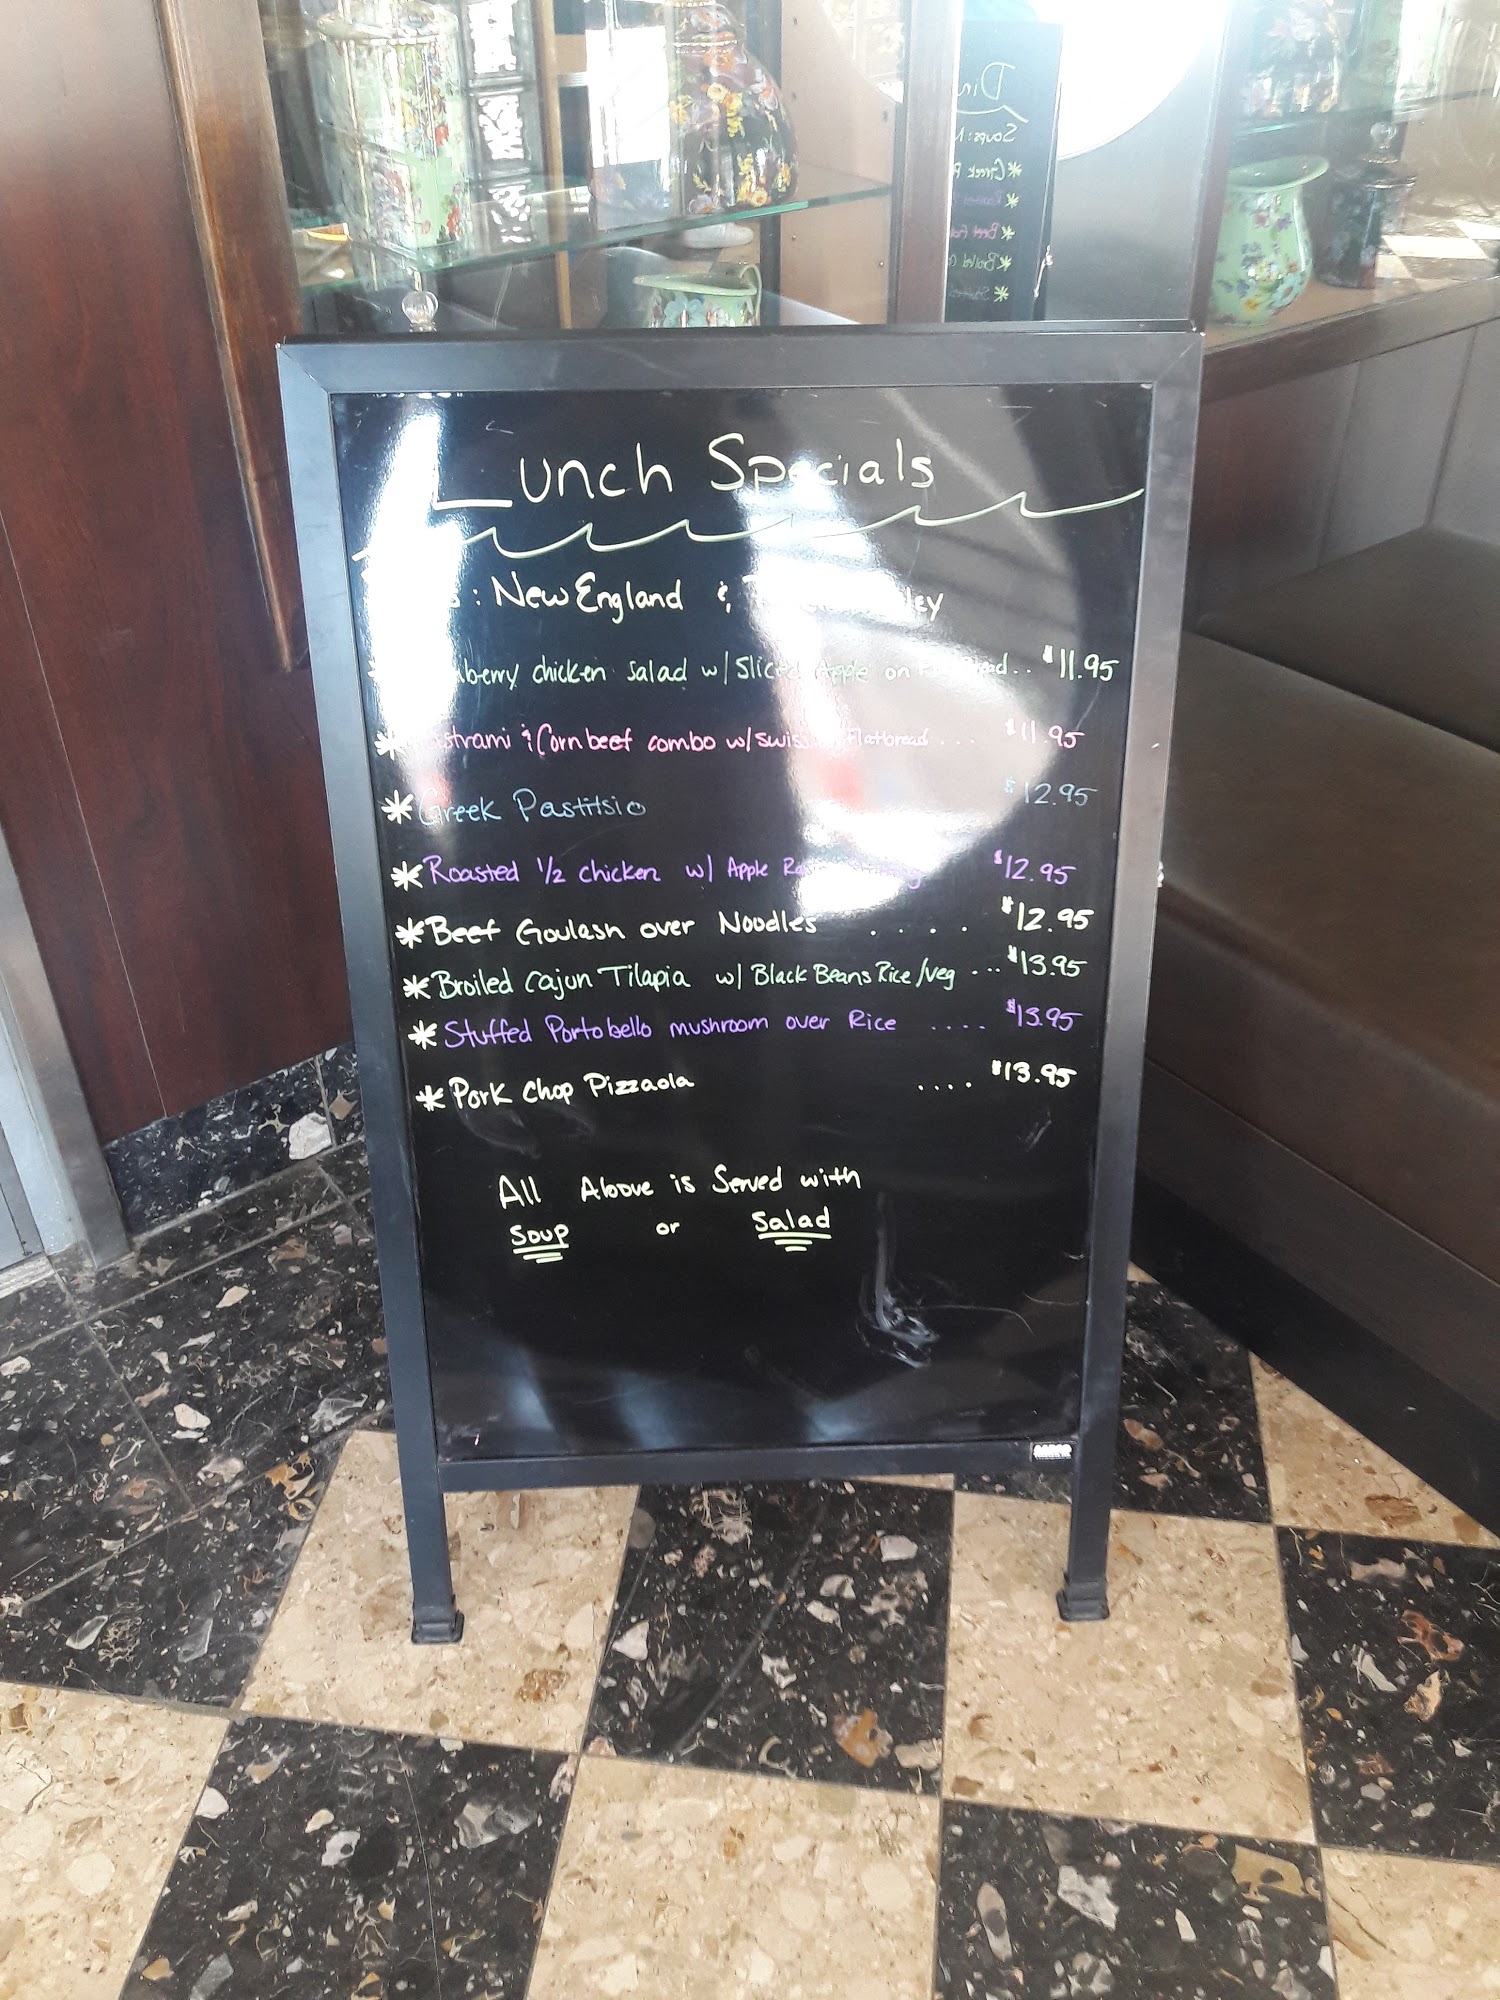 Lunch Specials
: New England &
chicken salad w/ Sliced Apple on .. $11.95
* & Corn beef combo w/ swiss flatbread ... $11.95
* Greek Pastitsio $12.95
* Roasted 1/2 chicken w/ Apple $12.95
* Beef Goulash over Noodles .... $12.95
* Broiled Cajun Tilapia w/ Black Beans Rice/veg ... $13.95
* Stuffed Portobello mushroom over Rice .... $13.95
* Pork Chop Pizzaola .... $13.95
All Above is Served with
Soup or Salad